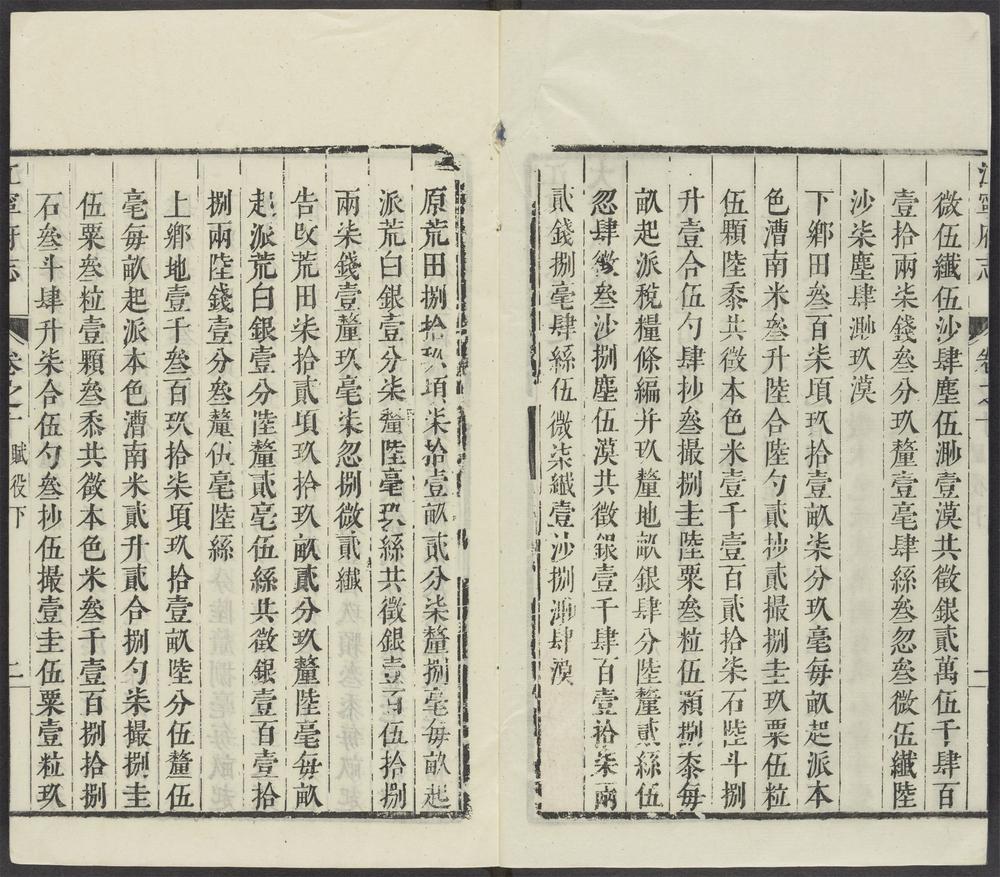 江寧府志 卷之十 一
微伍纖伍沙肆塵伍渺壹漠共徵銀貳萬伍千肆百
壹拾兩柒錢叁分玖釐壹毫肆絲叁忽叁微伍纖陸
沙柒塵肆渺玖漠
下鄉田叁百柒項玖拾壹畝柒分玖毫每畝起派本
色漕南米叁升陸合陸勺貳抄貳撮捌圭玖粟伍粒
伍顆陸黍共徵本色米壹千壹百貳拾柒石陸斗捌
升壹合伍勺肆抄叁撮捌圭陸粟叁粒伍顆捌黍每
畝起派稅糧條編并玖釐地畝銀肆分陸釐貳絲伍
忽肆微叁沙捌塵伍漠共徵銀壹千肆百壹拾柒兩
貳錢捌毫肆絲伍微柒纖壹沙捌渺肆漠
原荒田捌拾玖項柒拾壹畝貳分柒釐捌毫每畝起
派荒白銀壹分柒釐陸毫玖絲共徵銀壹百伍拾捌
兩柒錢壹釐玖毫柒忽捌微貳纖
告改荒田柒拾貳項玖拾玖畝貳分玖釐陸毫每畝
起派荒白銀壹分陸釐貳毫伍絲共徵銀壹百壹拾
捌兩陸錢壹分叁釐伍毫陸絲
上鄉地壹千叁百玖拾柒項玖拾壹畝陸分伍釐伍
毫每畝起派本色漕南米貳升貳合捌勺柒撮捌圭
伍粟叁粒壹顆叁黍共徵本色米叁千壹百捌拾捌
石叁斗肆升柒合伍勺叁抄伍撮壹圭伍粟壹粒玖
江寧府志 卷之十 賦役下 二